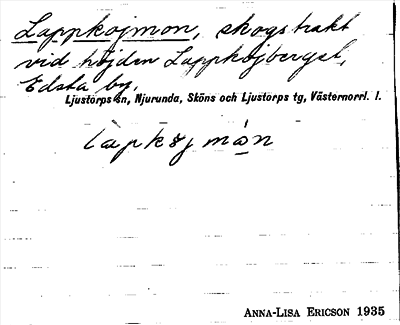 Lappkojmon, skogstrakt
vid höjden Lappkojberget,
Edsta by.
Ljustorps sn, Njurunda, Sköns och Ljustorps tg, Västernorrl. l.
ANNA-LISA ERICSON 1935